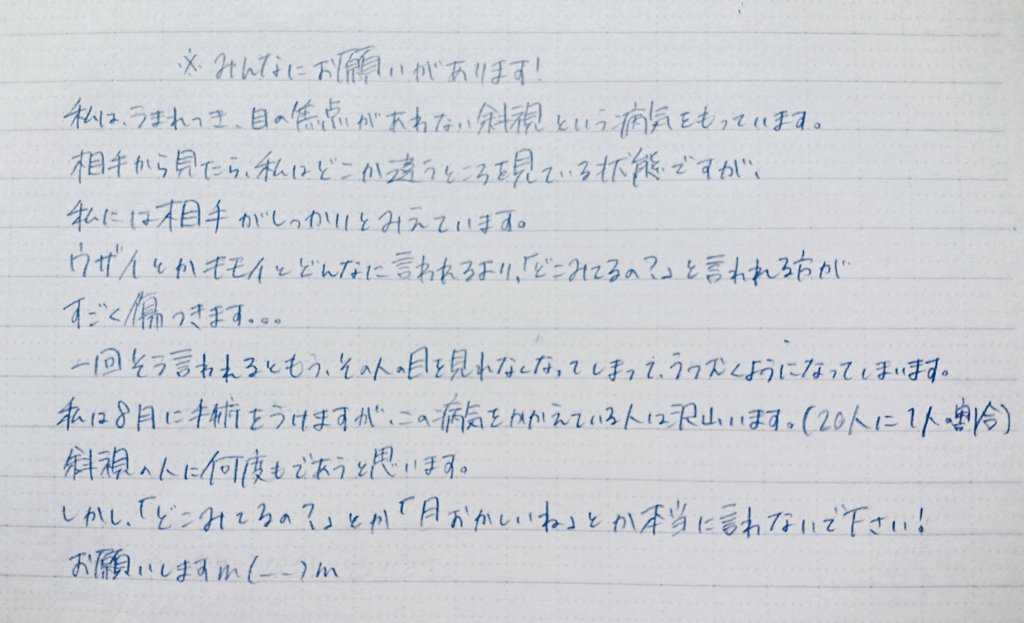 ※みんなにお願いがあります!
私は、うまれつき、目の焦点があわない斜視という病気をもっています。
相手から見たら、私はどこか違うところを見ている状態ですが、
私には相手がしっかりとみえています。
ウザイとかキモイとどんなに言われるより、「どこみてるの?」と言われる方が
すごく傷つきます。。。
一回そう言われるともう、その人の目を見れなくなってしまって、うつむくようになってしまいます。
私は8月に手術をうけますが、この病気をかかえている人は沢山います。(20人に1人の割合)
斜視の人に何度もであうと思います。
しかし、「どこみてるの?」とか「目おかしいね」とか本当に言わないで下さい!
お願いしますm(__)m